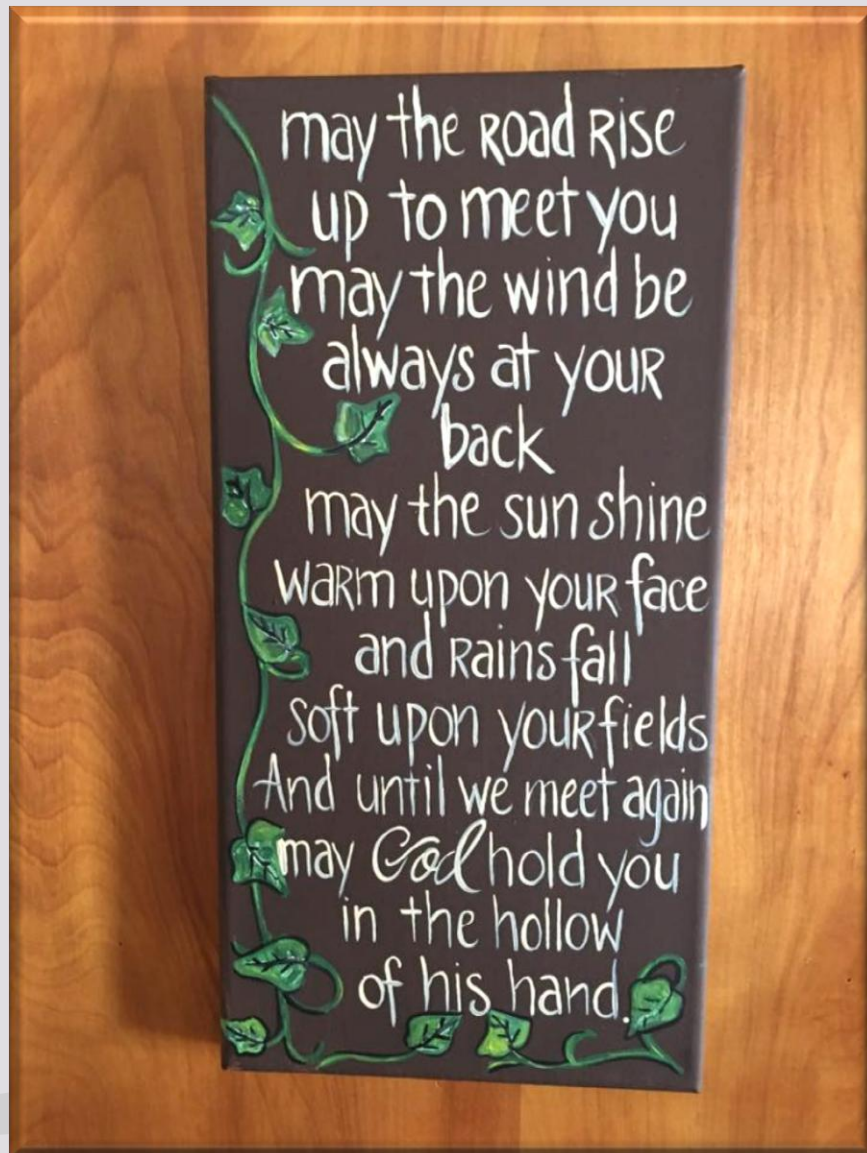 may the road rise
up to meet you
may the wind be
always at your
back
may the sun shine
warm upon your face
and rains fall
soft upon your fields
And until we meet again
may God hold you
in the hollow
of his hand.